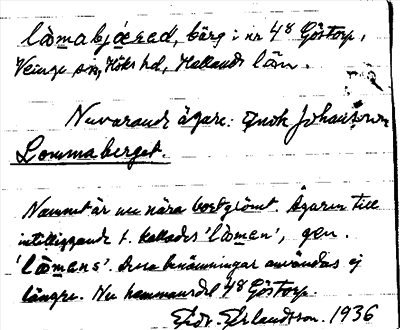 låmabjæred, bärg i nr 4⁸ Göstorp,
Veinge sn, Höks hd, Hallands län.
Nuvarande ägare: Enoh Johansson
Lommaberget.
Namnet är nu nära bortglömt. Ägaren till
intilliggande t. kallades 'låmen', gen.
'låmens'. Dessa benämningar användas ej
längre. Nu hemmansdel 4⁸ Göstorp.
Erlandsson. 1936